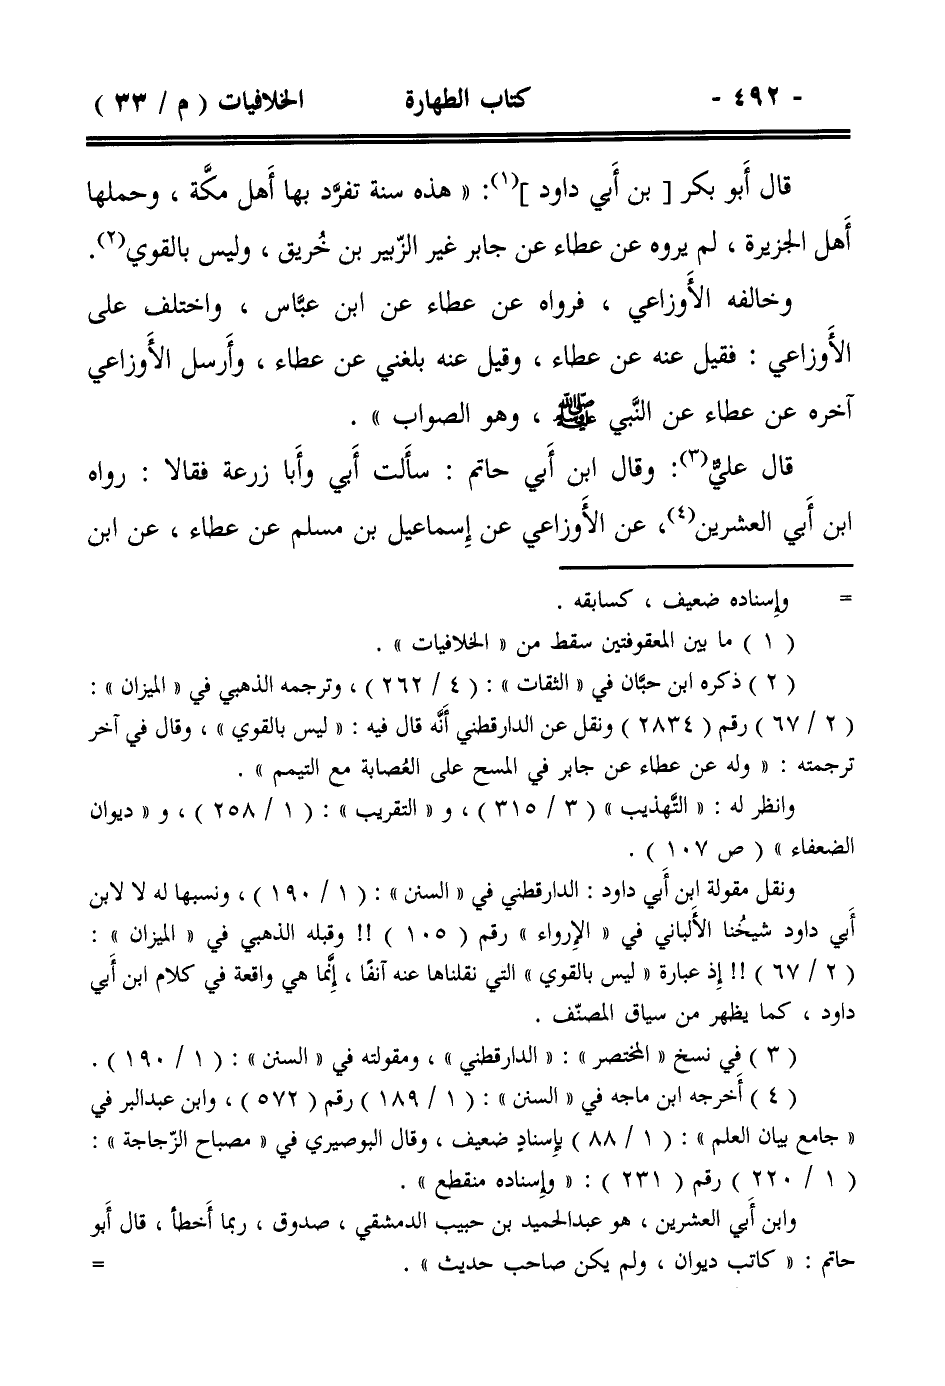 - ٤٩٢ - كتاب الطهارة الخلافيات ( م / ٣٣ )
قال أَبو بكر [ بن أَبي داود ](١): « هذه سنة تفرَّد بها أَهل مكَّة ، وحملها
أَهل الجزيرة ، لم يروه عن عطاء عن جابر غير الزّبير بن خُريق ، وليس بالقوي(٢).
وخالفه الأَوزاعي ، فرواه عن عطاء عن ابن عبَّاس ، واختلف على
الأَوزاعي : فقيل عنه عن عطاء ، وقيل عنه بلغني عن عطاء ، وأَرسل الأَوزاعي
آخره عن عطاء عن النَّبي ﷺ ، وهو الصواب » .
قال عليٌّ(٣): وقال ابن أَبي حاتم : سأَلت أَبي وأَبا زرعة فقالا : رواه
ابن أَبي العشرين(٤)، عن الأَوزاعي عن إِسماعيل بن مسلم عن عطاء ، عن ابن
= وإِسناده ضعيف ، كسابقه .
( ١ ) ما بين المعقوفتين سقط من « الخلافيات » .
( ٢ ) ذكره ابن حبَّان في « الثقات » : ( ٤ / ٢٦٢ ) ، وترجمه الذهبي في « الميزان » :
( ٢ / ٦٧ ) رقم ( ٢٨٣٤ ) ونقل عن الدارقطني أَنَّه قال فيه : « ليس بالقوي » ، وقال في آخر
ترجمته : « وله عن عطاء عن جابر في المسح على العُصابة مع التيمم » .
وانظر له : « التَّهذيب » ( ٣ / ٣١٥ ) ، و « التقريب » : ( ١ / ٢٥٨ ) ، و « ديوان
الضعفاء » ( ص ١٠٧ ) .
ونقل مقولة ابن أَبي داود : الدارقطني في « السنن » : ( ١ / ١٩٠ ) ، ونسبها له لا لابن
أَبي داود شيخُنا الأَلباني في « الإِرواء » رقم ( ١٠٥ ) !! وقبله الذهبي في « الميزان » :
( ٢ / ٦٧ ) !! إِذ عبارة « ليس بالقوي » التي نقلناها عنه آنفًا ، إِنَّما هي واقعة في كلام ابن أَبي
داود ، كما يظهر من سياق المصنّف .
( ٣ ) في نسخ « المختصر » : « الدارقطني » ، ومقولته في « السنن » : ( ١ / ١٩٠ ) .
( ٤ ) أَخرجه ابن ماجه في « السنن » : ( ١ / ١٨٩ ) رقم ( ٥٧٢ ) ، وابن عبدالبر في
« جامع بيان العلم » : ( ١ / ٨٨ ) بإِسنادٍ ضعيف ، وقال البوصيري في « مصباح الزّجاجة » :
( ١ / ٢٢٠ ) رقم ( ٢٣١ ) : « وإِسناده منقطع » .
وابن أَبي العشرين ، هو عبدالحميد بن حبيب الدمشقي ، صدوق ، ربما أَخطأ ، قال أَبو
حاتم : « كاتب ديوان ، ولم يكن صاحب حديث » . =